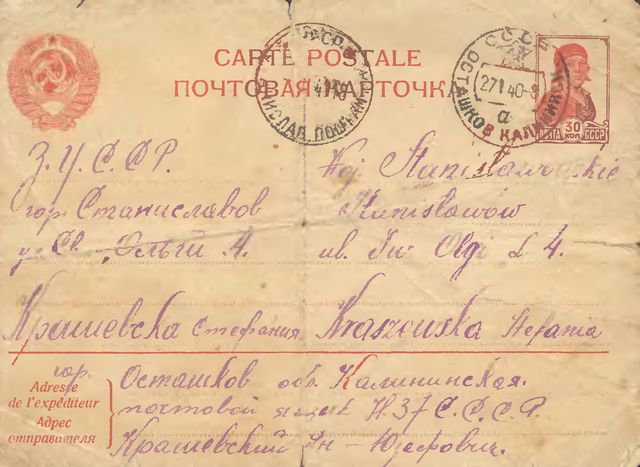 CARTE POSTALE
ПОЧТОВАЯ КАРТОЧКА
СССР
27 1 40
а
ОСТАШКОВ КАЛИНИНСК
ПОЧТА 30 КОП СССР
З. У. С. С. Р.
гор. Станиславов
у Св. Ольги 4.
Крашевска Стефания
Woj. Stanisławowskie
Stanisławów
ul. Św Olgi L 4.
Kraszewska Stefania
Adresse
de l'expéditeur
Адрес
отправителя
гор. Осташков обл. Калининская.
почтовой ящик № 37 С. С. С. Р.
Крашевский Ян - Юзефович.